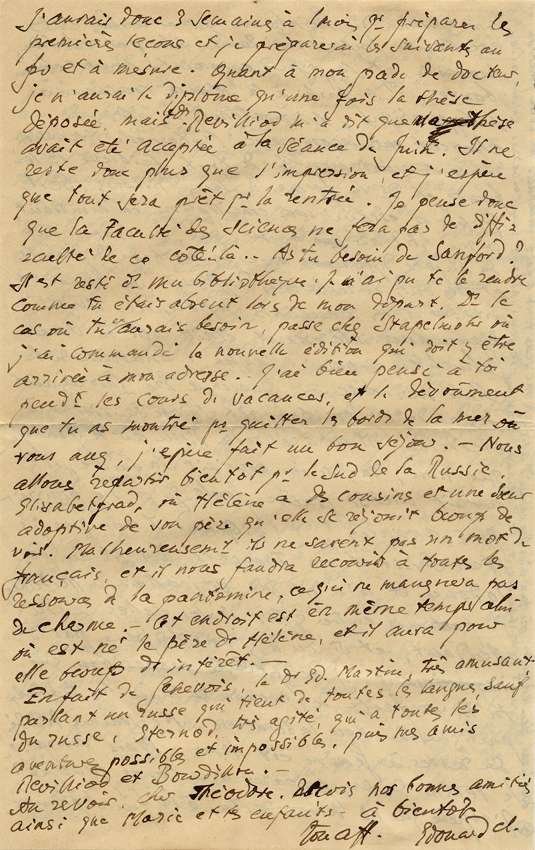 J'aurais donc 3 semaines à 1 mois pr préparer les
premières leçons et je préparerai les suivantes au
fur et à mesure. Quant à mon grade de docteur,
je n'aurai le diplôme qu'une fois la thèse
déposée, mais Dr Revilliod m'a dit que ma thèse
avait été acceptée à la séance de Juin. Il ne
reste donc plus que l'impression, et j'espère
que tout sera prêt pr la rentrée. Je pense donc
que la Faculté des Sciences ne fera pas de diffi-
culté de ce côté-là. As tu besoin de Sanford?
Il est resté ds ma bibliothèque. Je n'ai pu te le rendre
comme tu étais absent lors de mon départ. Ds le
cas où tu en aurais besoin, passe chez Stapelmohr où
j'ai commandé la nouvelle édition qui doit y être
arrivée à mon adresse. J'ai bien pensé à toi
pendt les cours de vacances, et le dévoûment
que tu as montré pr quitter les bords de la mer où
vous avez, j'espère, fait un bon séjour. — Nous
allons repartir bientôt pr le sud de la Russie,
Elisabetgrad, où Hélène a des cousins et une sœur
adoptive de son père qu'elle se réjouit bcoup de
voir. Malheureusemt ils ne savent pas un mot de
français, et il nous faudra recourir à toutes les
ressources de la pantomime, ce qui ne manquera pas
de charme. — Cet endroit est en même temps celui
où est né le père de Hélène, et il aura pour
elle bcoup de intérêt. —
En fait de Genevois, le Dr Ed. Martin, très amusant
parlant un russe qui tient de toutes les langues sauf
du russe; Sternod, très agité, qui a toutes les
aventures possibles et impossibles, puis mes amis
Revilliod et Bourdillon. —
Au revoir, cher Théodore. Reçois nos bonnes amitiés
ainsi que Marie et tes enfants. à bientôt
Ton aff. Edouard Cl.